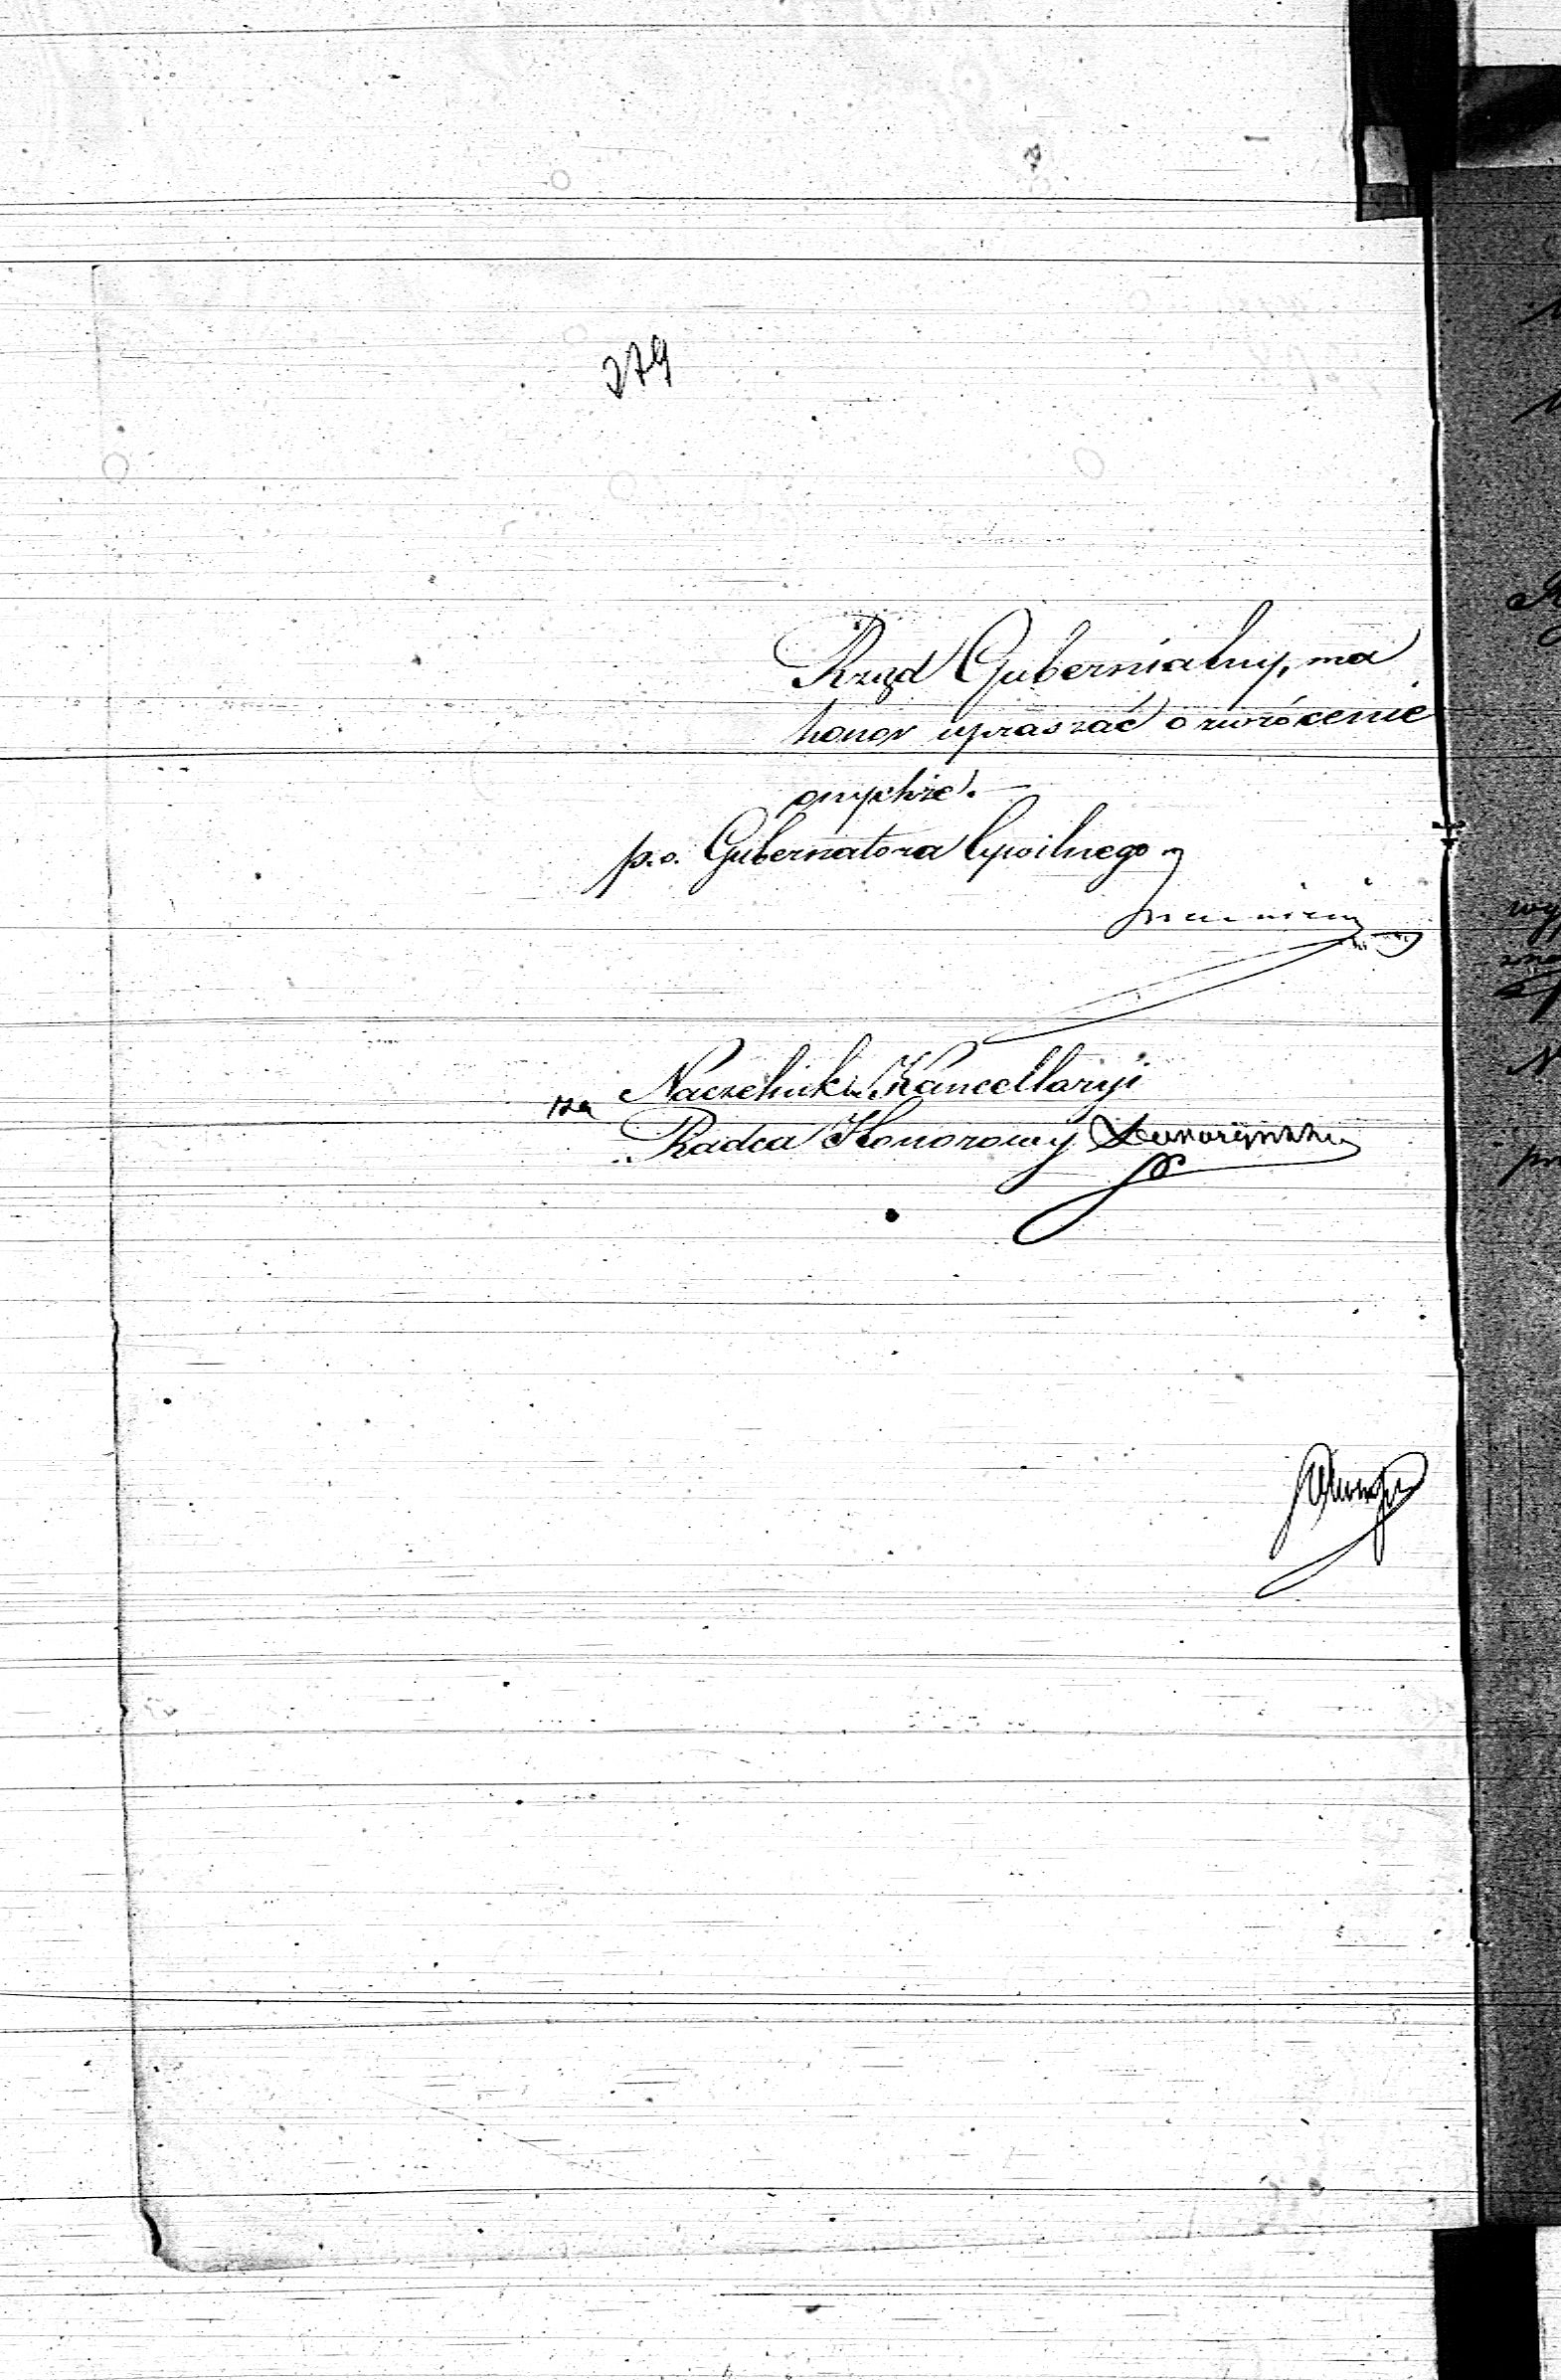 279
Rząd Gubernialny, ma
honor upraszać o zwrócenie
onychże. —
p.o. Gubernatora Cywilnego
za Naczelnika Kancellaryi
Radca Honorowy